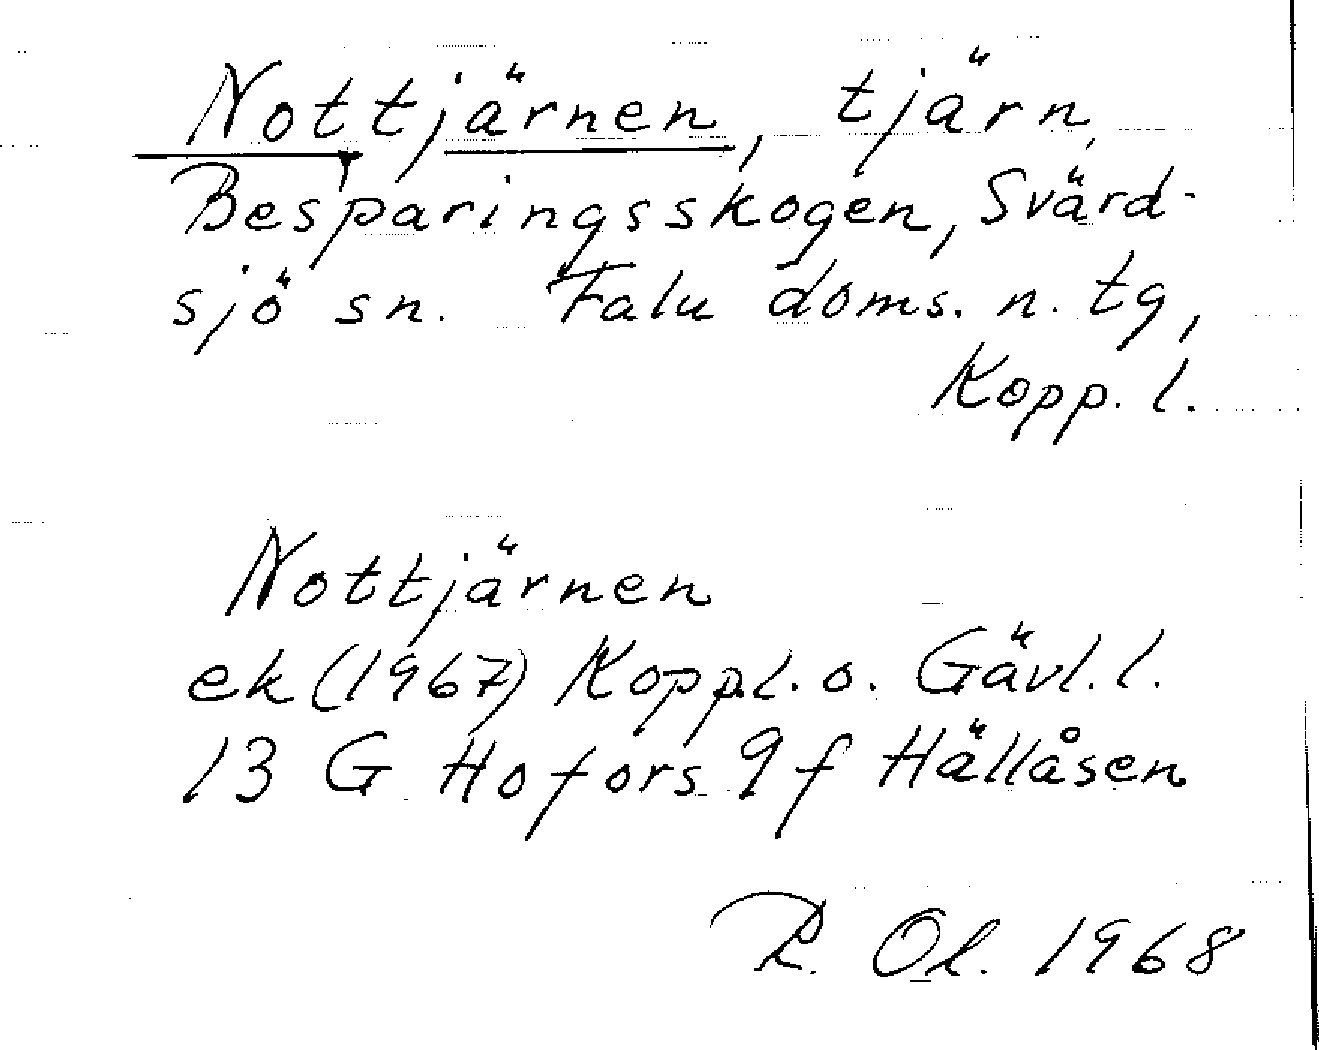 Nottjärnen, tjärn,
Besparingsskogen, Svärd-
sjö sn. Falu doms. n. tg,
Kopp. l.
Nottjärnen
ek (1967) Kopp.l. o. Gävl. l.
13 G Hofors 9 f Hällåsen
R. Ol. 1968